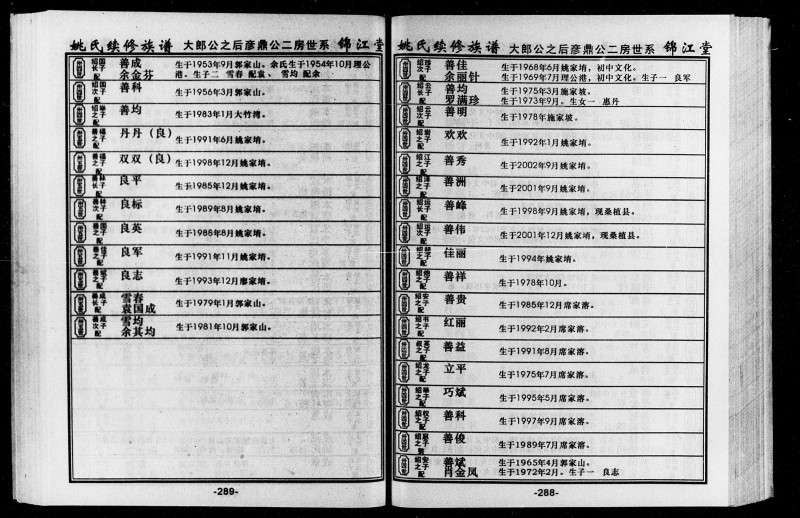 姚氏续修族谱 大郎公之后彦鼎公二房世系 锦江堂
善成 生于1953年9月郭家山。余氏生于1954年10月理公
余金芬 港。生子二 雪春 配袁、雪均 配余
善科 生于1956年3月郭家山。
善均 生于1983年1月大竹湾。
丹丹（良） 生于1991年6月姚家埫。
双双（良） 生于1998年12月姚家埫。
良平 生于1985年12月姚家埫。
良标 生于1989年8月姚家埫。
良英 生于1988年8月姚家埫。
良军 生于1991年11月姚家埫。
良志 生于1993年12月廖家埫。
雪春 生于1979年1月郭家山。
袁国成
雪均 生于1981年10月郭家山。
余其均
-289-
姚氏续修族谱 大郎公之后彦鼎公二房世系 锦江堂
善佳 生于1968年6月姚家埫，初中文化。
余丽针 生于1969年7月理公港，初中文化。生子一 良军
善均 生于1975年3月施家坡。
罗满珍 生于1973年9月。生女一 惠丹
善明 生于1978年施家坡。
欢欢 生于1992年1月姚家埫。
善秀 生于2002年9月姚家埫。
善洲 生于2001年9月姚家埫。
善峰 生于1998年9月姚家埫，现桑植县。
善伟 生于2001年12月姚家埫，现桑植县。
佳丽 生于1994年姚家埫。
善祥 生于1978年10月。
善贵 生于1985年12月席家溶。
红丽 生于1992年2月席家溶。
善益 生于1991年8月席家溶。
立平 生于1975年7月席家溶。
巧斌 生于1995年5月席家溶。
善科 生于1997年9月席家溶。
善俊 生于1989年7月席家溶。
善斌 生于1965年4月郭家山。
肖金凤 生于1972年2月。生子一 良志
-288-